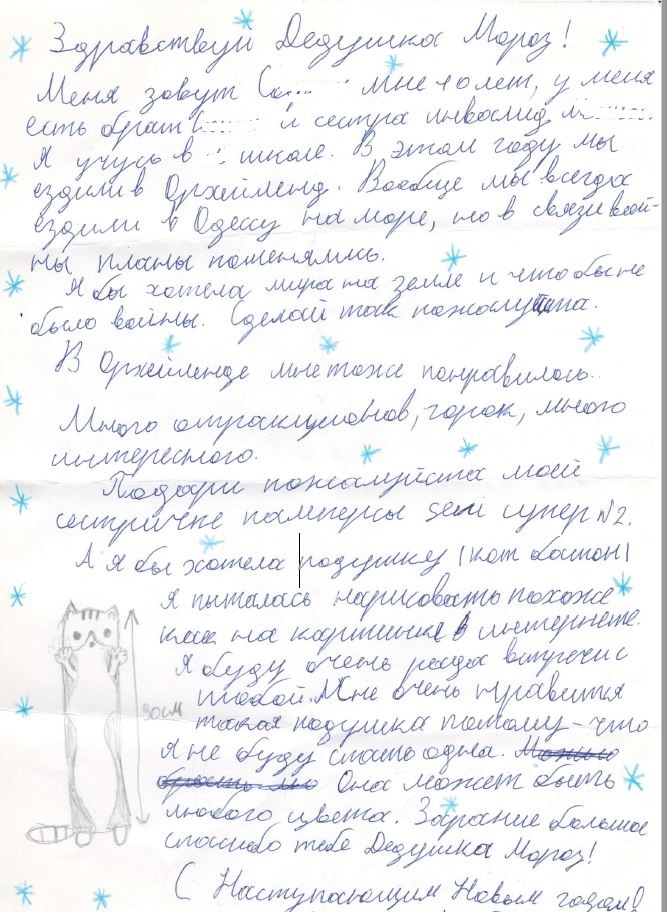 Здравствуй Дедушка Мороз!
Меня зовут С мне 10 лет, у меня
есть брат и сестра инвалид
Я учусь в школе. В этом году мы
ездили в Орхейленд. Вообще мы всегда
ездили в Одессу на море, но в связи вой-
ны планы поменялись.
Я бы хотела мира на земле и что бы не
было войны. Сделай так пожалуйста.
В Орхейленде мне тоже понравилось.
Много атракционов, горок, много
интересного.
Подари пожалуйста моей
сестричке памперсы seni супер N2.
А я бы хотела подушку (кот батон)
Я пыталась нарисовать похоже
как на картинке в интернете.
Я буду очень рада встречи с
тобой. Мне очень нравится
такая подушка потому-что
Я не буду спать одна.
Она может быть
любого цвета. Зарание большое
спасибо тебе Дедушка Мороз!
С Наступающим Новым годом!